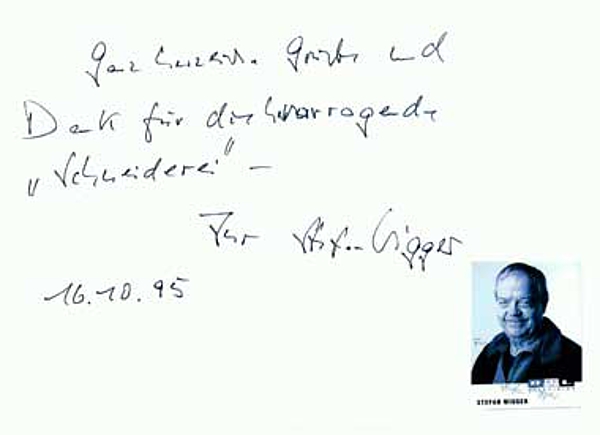 Ganz herzlich. Grüße und
Dank für die hervorragende
„Schneiderei" –
Ihr Stefan Wigger
16.10.95
STEFAN WIGGER